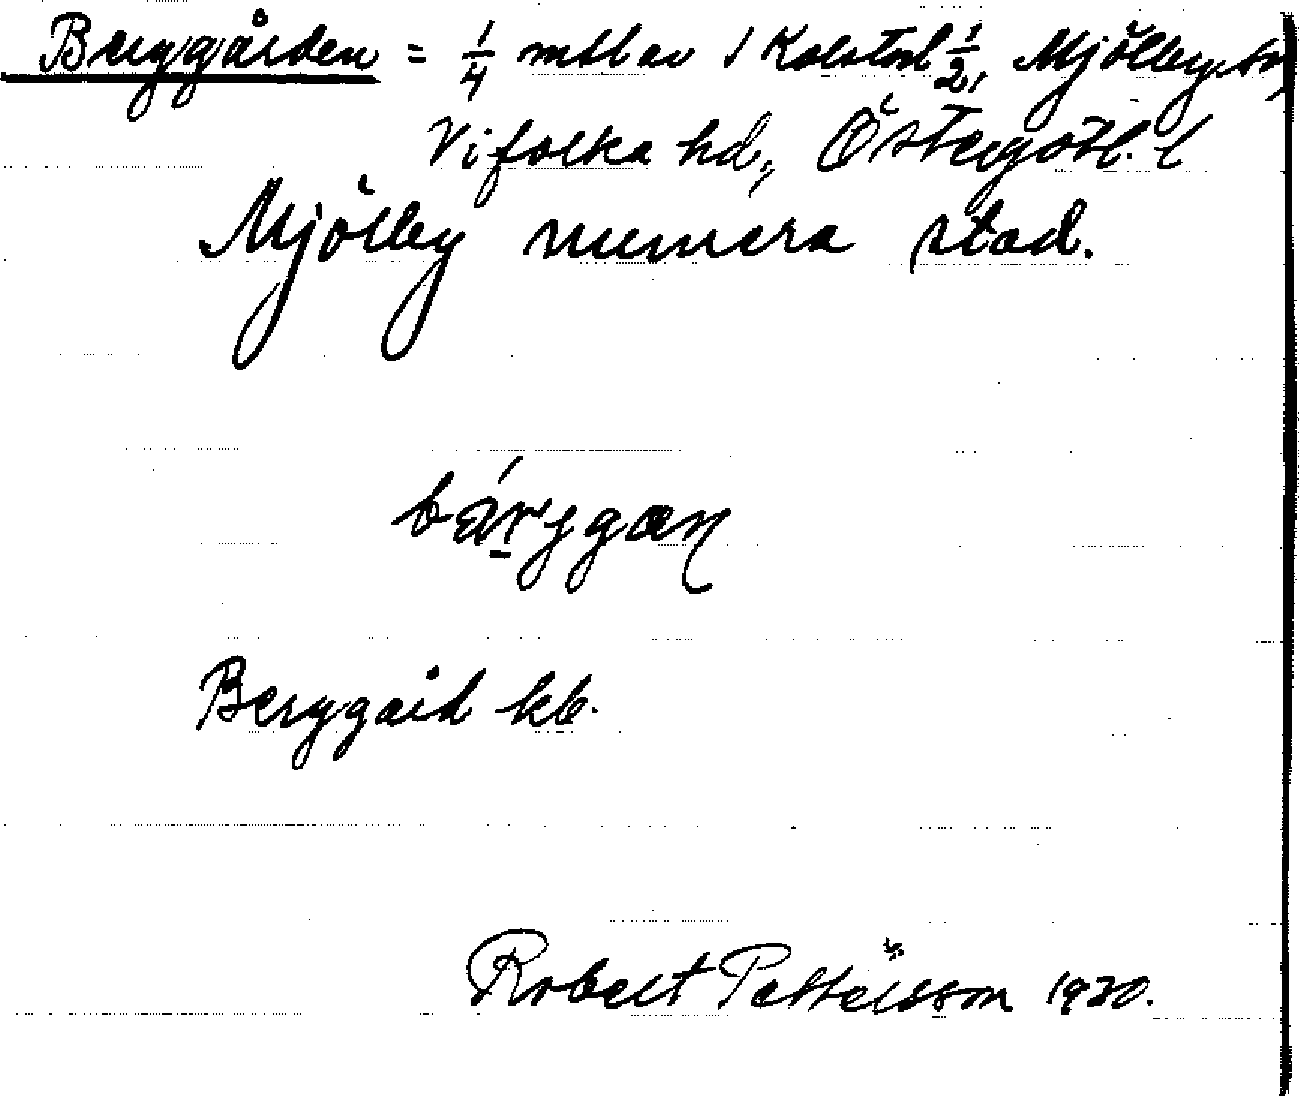 Berggården = 1/4 mtl av 1 Kolstad 1/2, Mjölby sn,
Vifolka hd., Östergötl. l
Mjölby numera stad.
bárygaɳ
Berggård kb.
Robert Pettersson 1920.